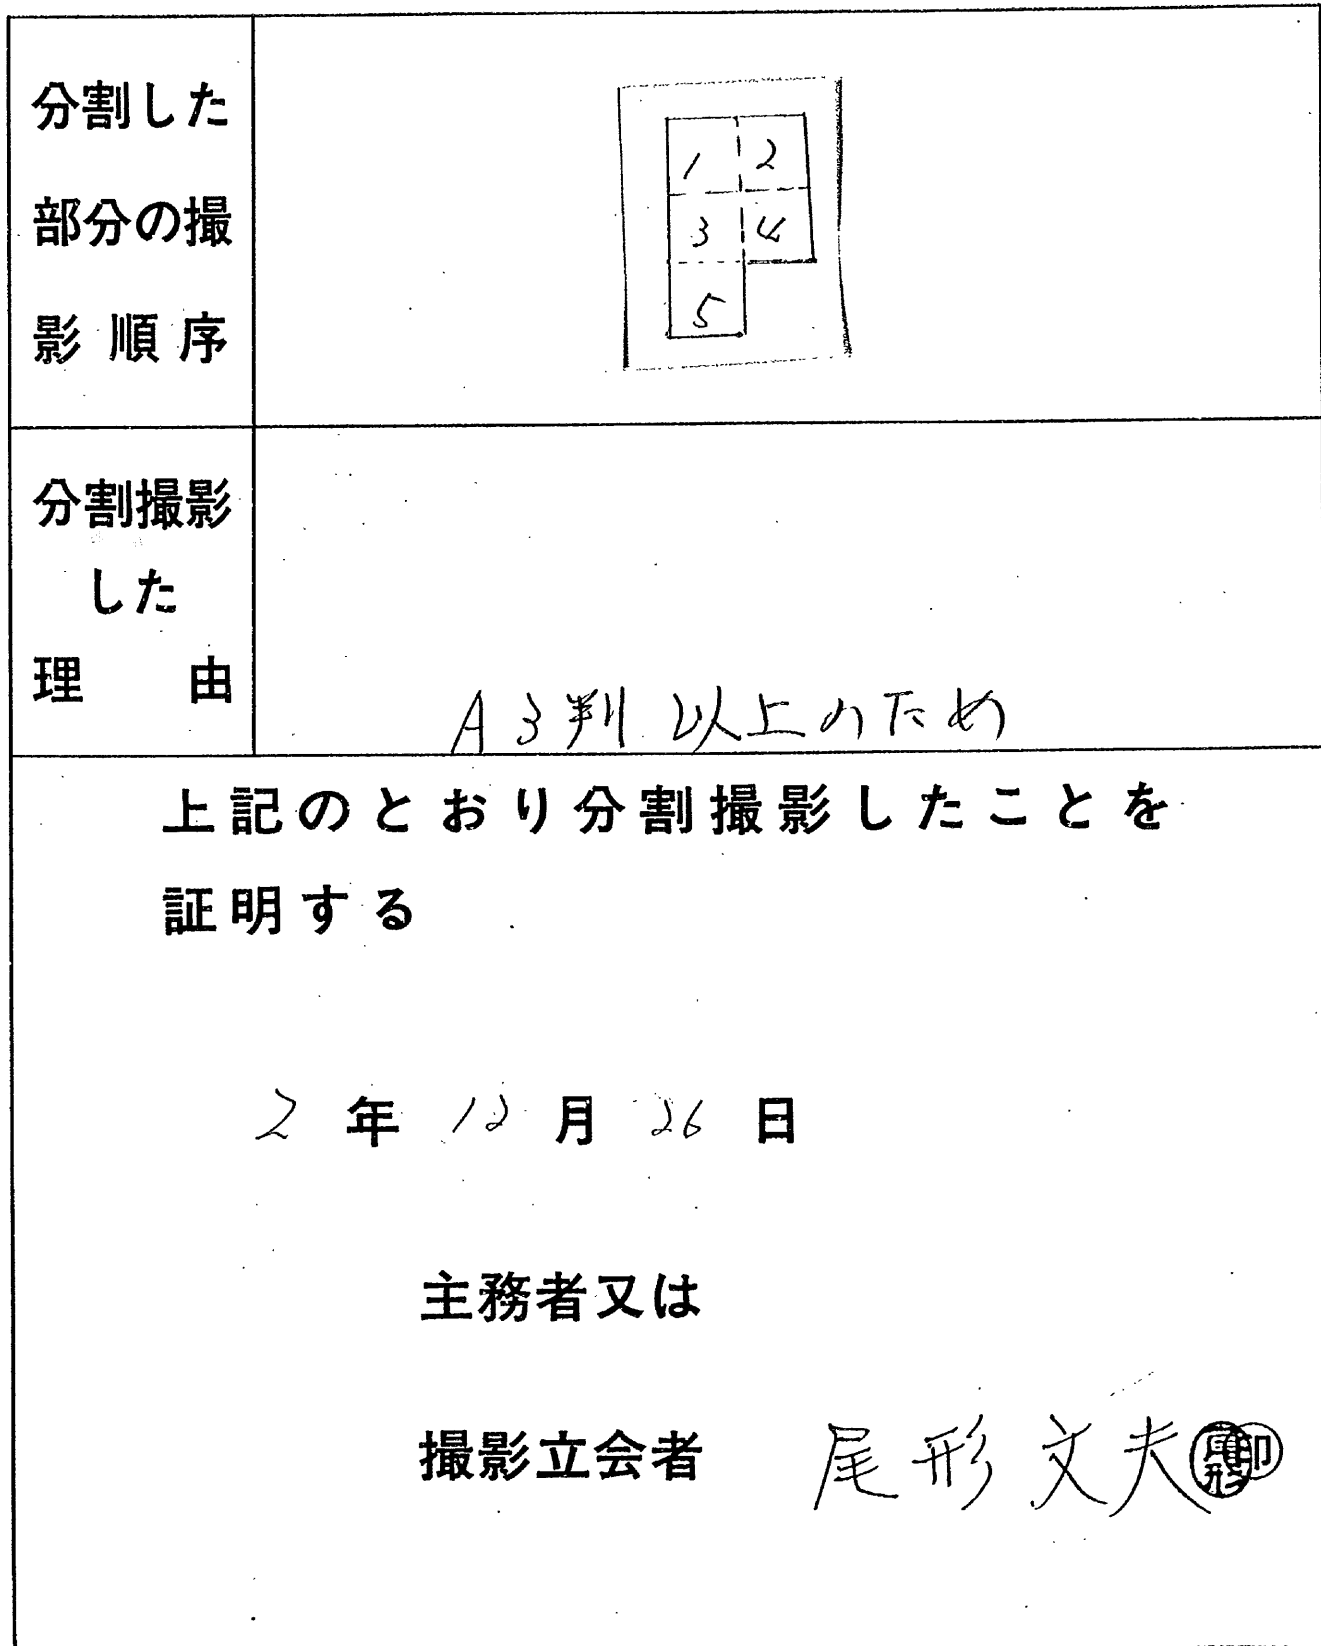 分割した
部分の撮
影順序
1 2
3 4
5
分割撮影
した
理由
A3判以上のため
上記のとおり分割撮影したことを
証明する
2年12月26日
主務者又は
撮影立会者 尾形文夫 尾形 印